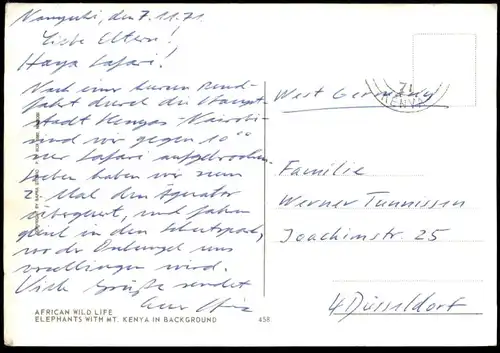 Nanyuki, den 7.11.71.
Liebe Eltern!
Haya Safari!
Nach einer kurzen Rund-
fahrt durch die Haupt-
stadt Kenyas - Nairobi -
sind wir gegen 10°°
zur Safari aufgebrochen.
Soeben haben wir zum
2. Mal den Äquator
überquert, und fahren
gleich in den
wo der Dschungel uns
verschlingen wird.
Viele Grüße sendet
Euer
AFRICAN WILD LIFE
ELEPHANTS WITH MT. KENYA IN BACKGROUND 458
71
KENYA
West Germany
Familie
Werner Tunnissen
Joachimstr. 25
4 Düsseldorf